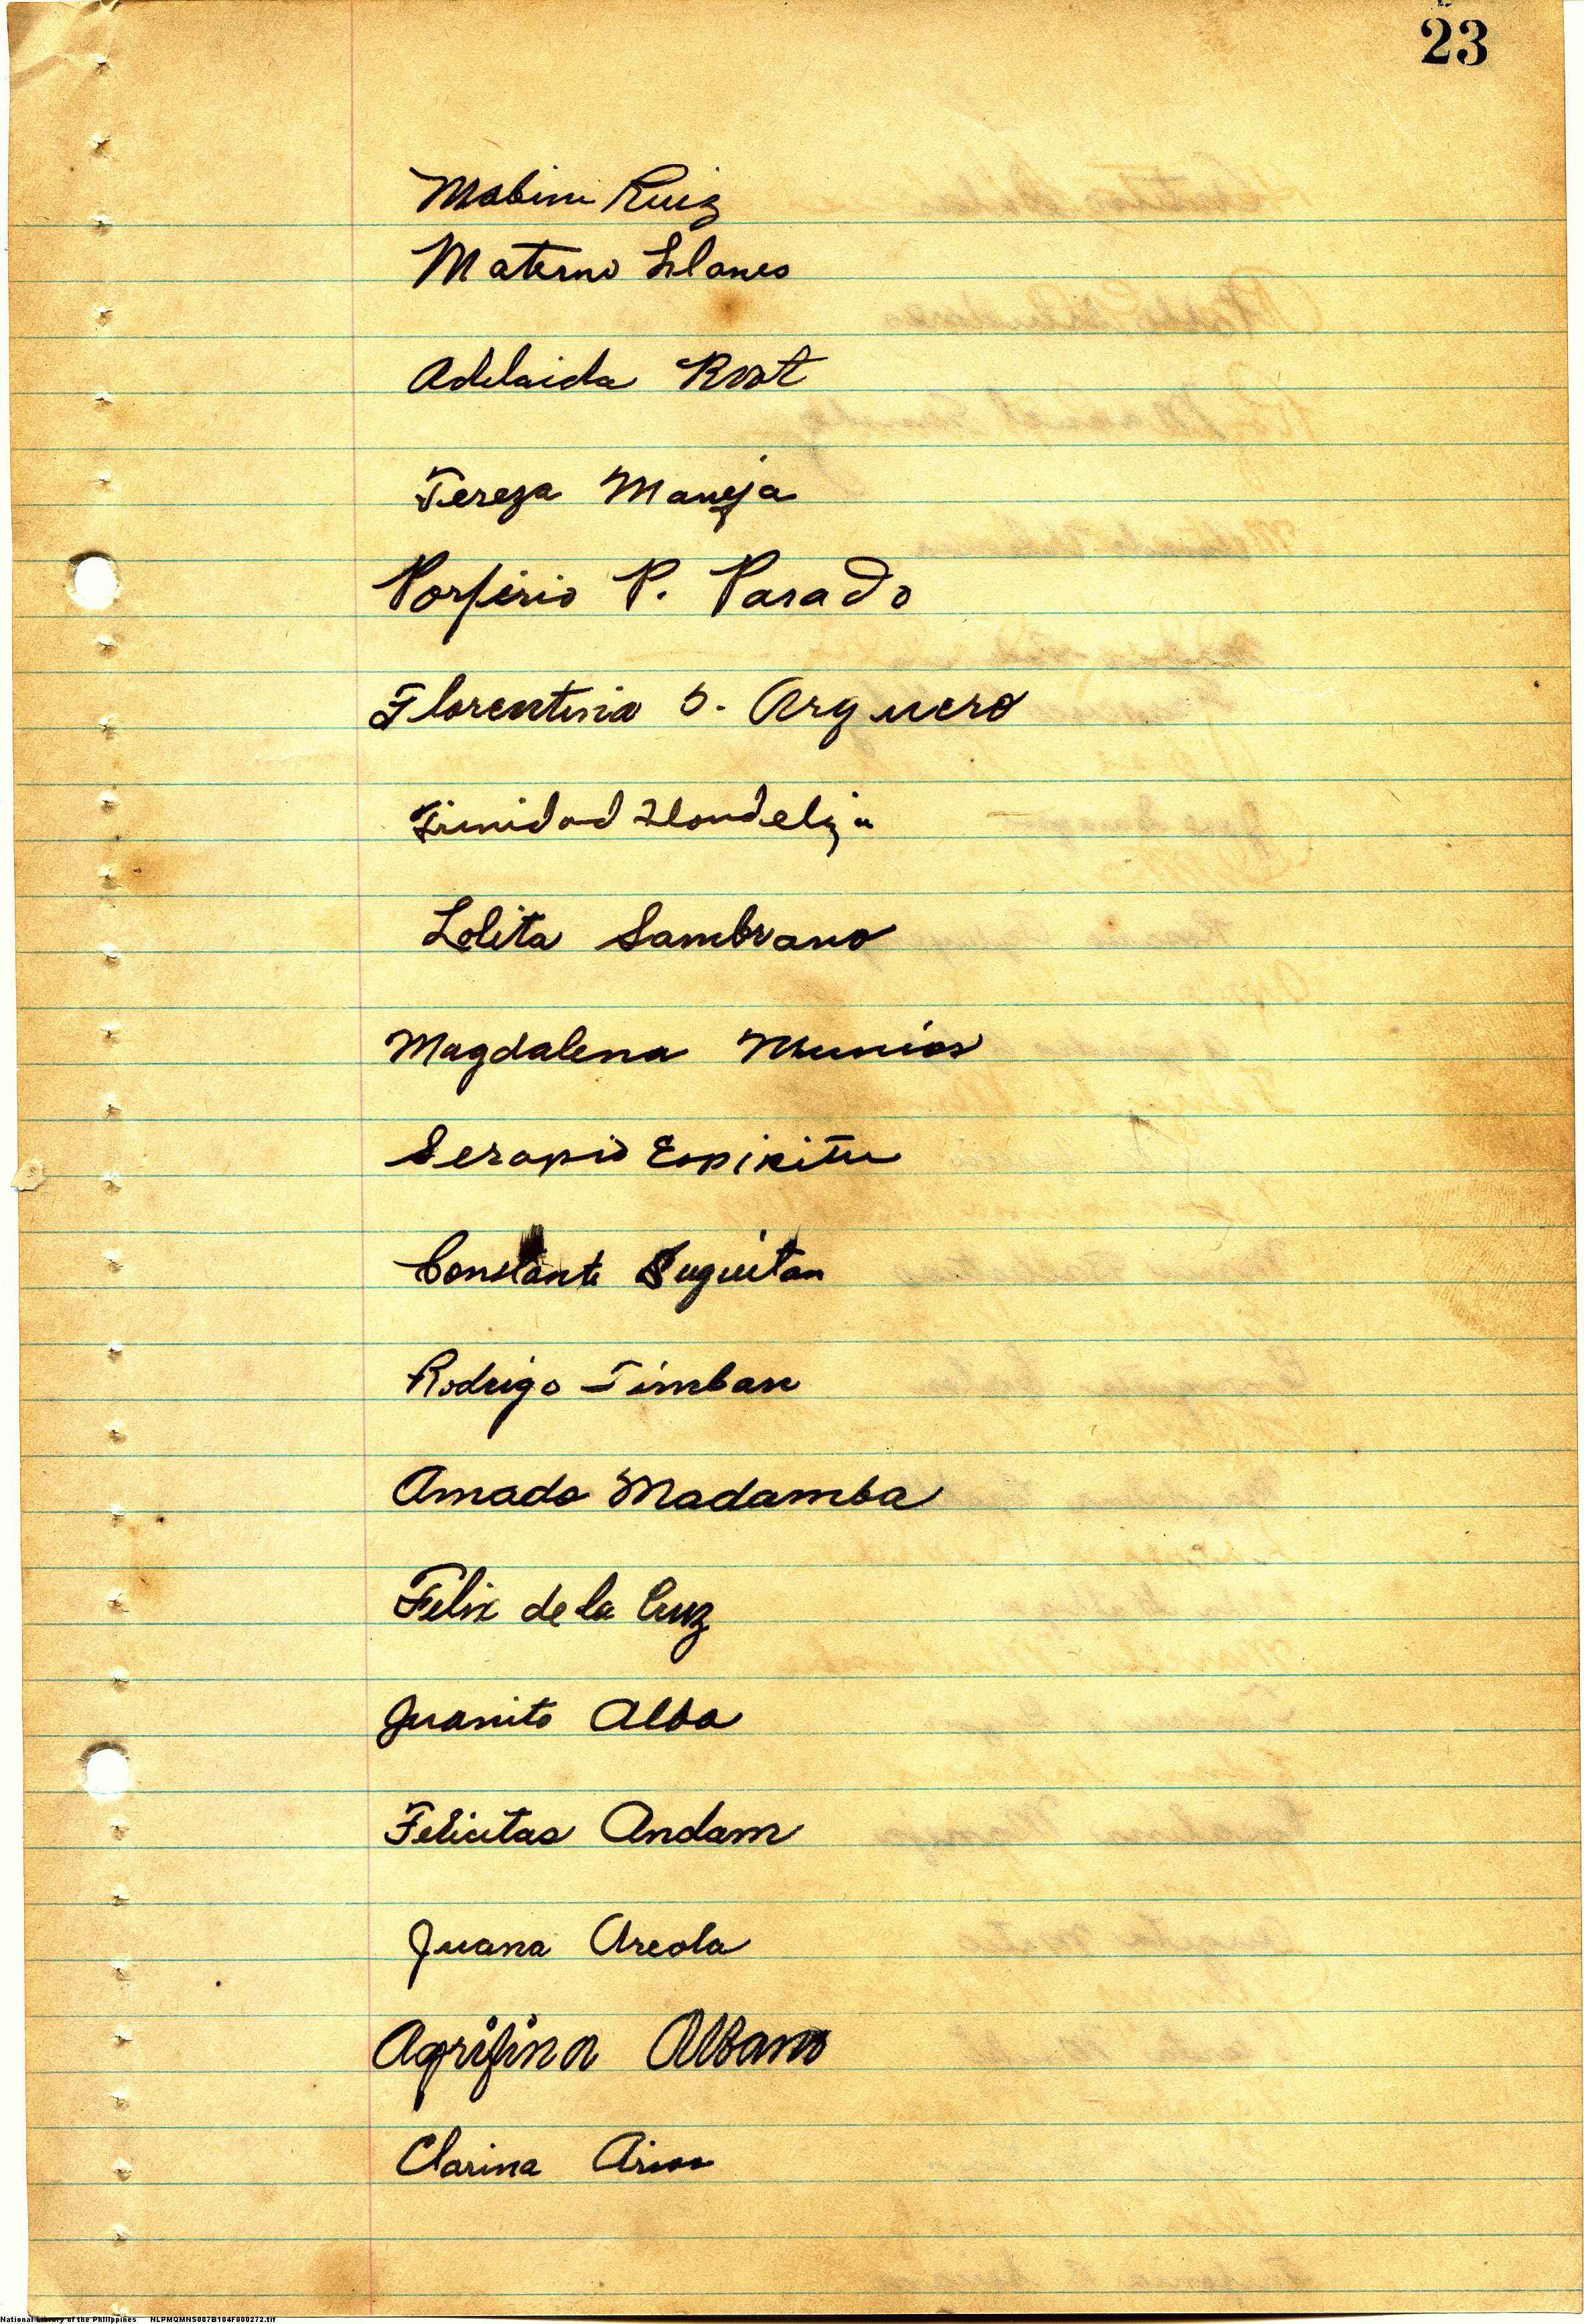 23
Mabini Ruiz
Materno Llanes
Adelaida Root
Tereza Maneja
Porfirio P. Parado
Florentina S. Arguero
Trinidad
Lolita Sambrano
Magdalena Munios
Serapio Espiritu
Constante Suguitan
Rodrigo Timban
Amado Madamba
Felix de la Cruz
Juanito Alba
Felicitas Andam
Juana Areola
Agrifina Albano
Clarina
National Library of the Philippines NLPMQMNS007B104F000272.tif